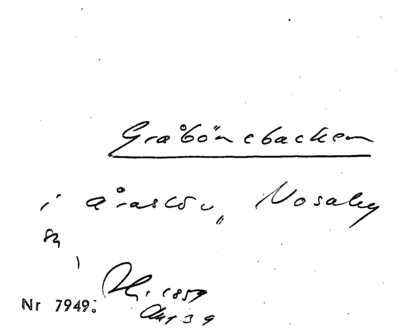 Gråbönebacken
i Åraslöv, Nosaby
sn
1859
Akt 39
Nr 7949.